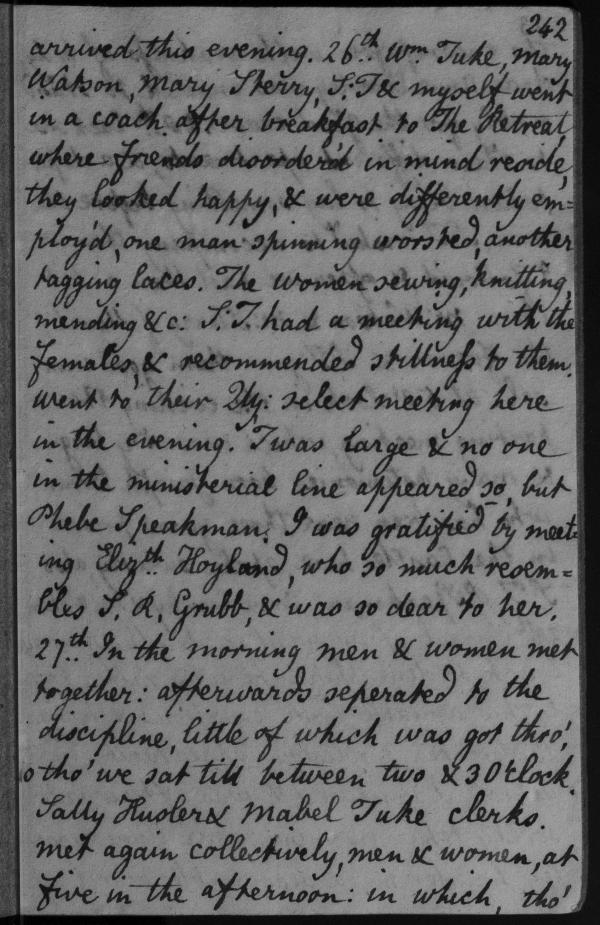 242
arrived this evening. 26.th Wm. Tuke, Mary
Watson, Mary Sterry, S:T & myself went
in a coach after breakfast to The Retreat,
where friends disorder'd in mind reside,
they looked happy, & were differently em=
ploy'd, one man spinning worsted, another
tagging laces. The women sewing, knitting,
mending &c: S:T. had a meeting with the
females, & recommended stillness to them.
went to their Qly: select meeting here
in the evening. Twas large & no one
in the ministerial line appeared so, but
Phebe Speakman. I was gratified by meet=
ing Eliz.th Hoyland, who so much resem=
bles S. R. Grubb, & was so dear to her.
27.th In the morning men & women met
together: afterwards seperated to the
discipline, little of which was got thro',
tho' we sat till between two & 3 O'clock.
Sally Husler & Mabel Tuke clerks.
met again collectively, men & women, at
five in the afternoon: in which, tho'